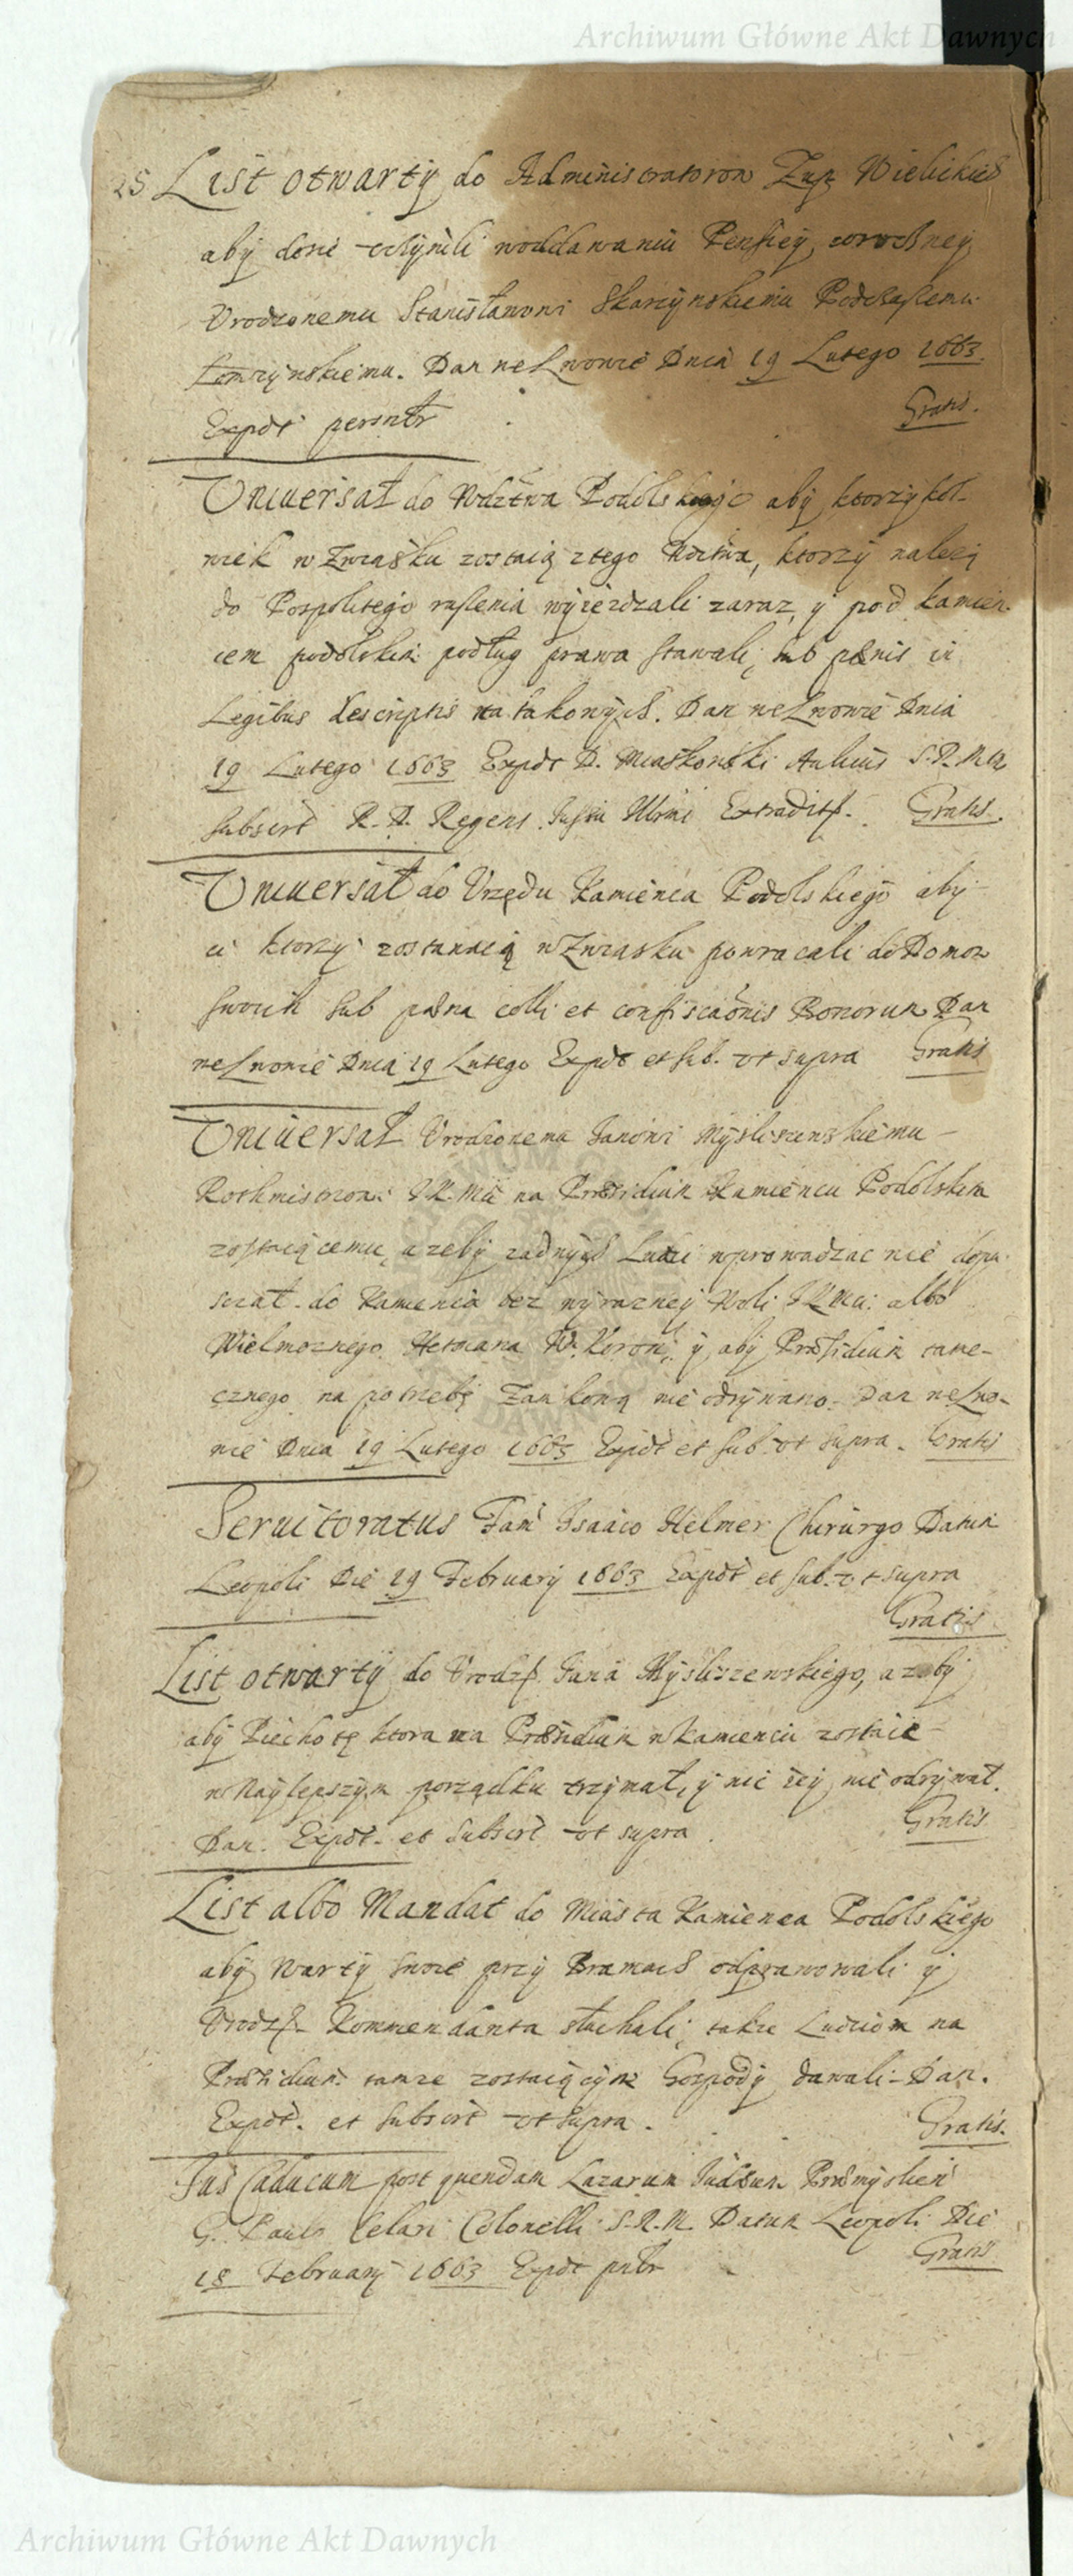 Archiwum Główne Akt Dawnych
25 List otwarty do Administratorow Zup Wielickich
aby dosic uczynili w oddawaniu Pensiey corocżney
Vrodzonemu Stanisławowi Skarzynskiemu Podczaszemu
Łomzynskiemu. Dan we Lwowie Dnia 19 Lutego 1663.
Expdt Gratis.
Vniuersał do Wdztwa Podolskiego aby ktorzykol-
wiek w Zwiąsku zostaią z tego Wdztwa, ktorzy nalezą
do Pospolitego ruszenia wyiezdzali zaraz, y pod kamien-
cem podolskim podług prawa stawali, sub pænis in
Legibus descriptis na takowych. Dan we Lwowie Dnia
19 Lutego 1663 Expdt D. Miaskowski Aulicus S.R.M
subscrt R. D. Regens Extradit. Gratis.
Vniuersał do Vrzędu Kamienca Podolskiego aby
ci ktorzy zostawaią w Zwiasku powracali do Domow
swoich sub pæna colli et confiscaõnis Bonorum Dan
we Lwowie Dnia 19 Lutego Expdt et sub. vt supra Gratis
Vniuersał Vrodzonemu Janowi Mysliszewskiemu
Rothmistrzowi J.K.Mci na Præsidium Kamiencu Podolskim
zostaiącemu, azeby zadnych Ludzi wprowadzac nie dopu-
szczał do Kamienca bez wyrazney Woli J K Mci albo
Wielmoznego Hetmana W. Koron: y aby Præsidium tame-
cznego na potrzebę Zamkową nie odrywano. Dan we Lwo-
wie Dnia 19 Lutego 1663 Expdt et sub. vt supra. Gratis
Seruitoratus Fam Isaaco Helmer Chirurgo Datum
Leopoli Die 19 February 1663 Expdt et sub. vt supra
Gratis
List otwarty do Vrodz Jana Mysliszewskiego, azeby
aby Piechotę ktora na Præsidium w Kamiencu zostaie
w Naylepszym porządku trzymał, y nic iey nie odrywał.
Dan. Expdt. et subscrt vt supra. Gratis
List albo Mandat do Miasta Kamienca Podolskiego
aby Warty swoie przy Bramach odprawowali y
Vrodz Kommendanta słuchali, takze Ludziom na
Præsidium tamze zostaiącym Gospody dawali. Dan.
Expdt. et subscrt vt supra. Gratis.
Jus Caducum post quendam Lazarum Judæum Præmyslien
G. Paulo Celari Colonelli S.R.M. Datum Leopoli Die
18 February 1663 Expdt Gratis
Archiwum Główne Akt Dawnych